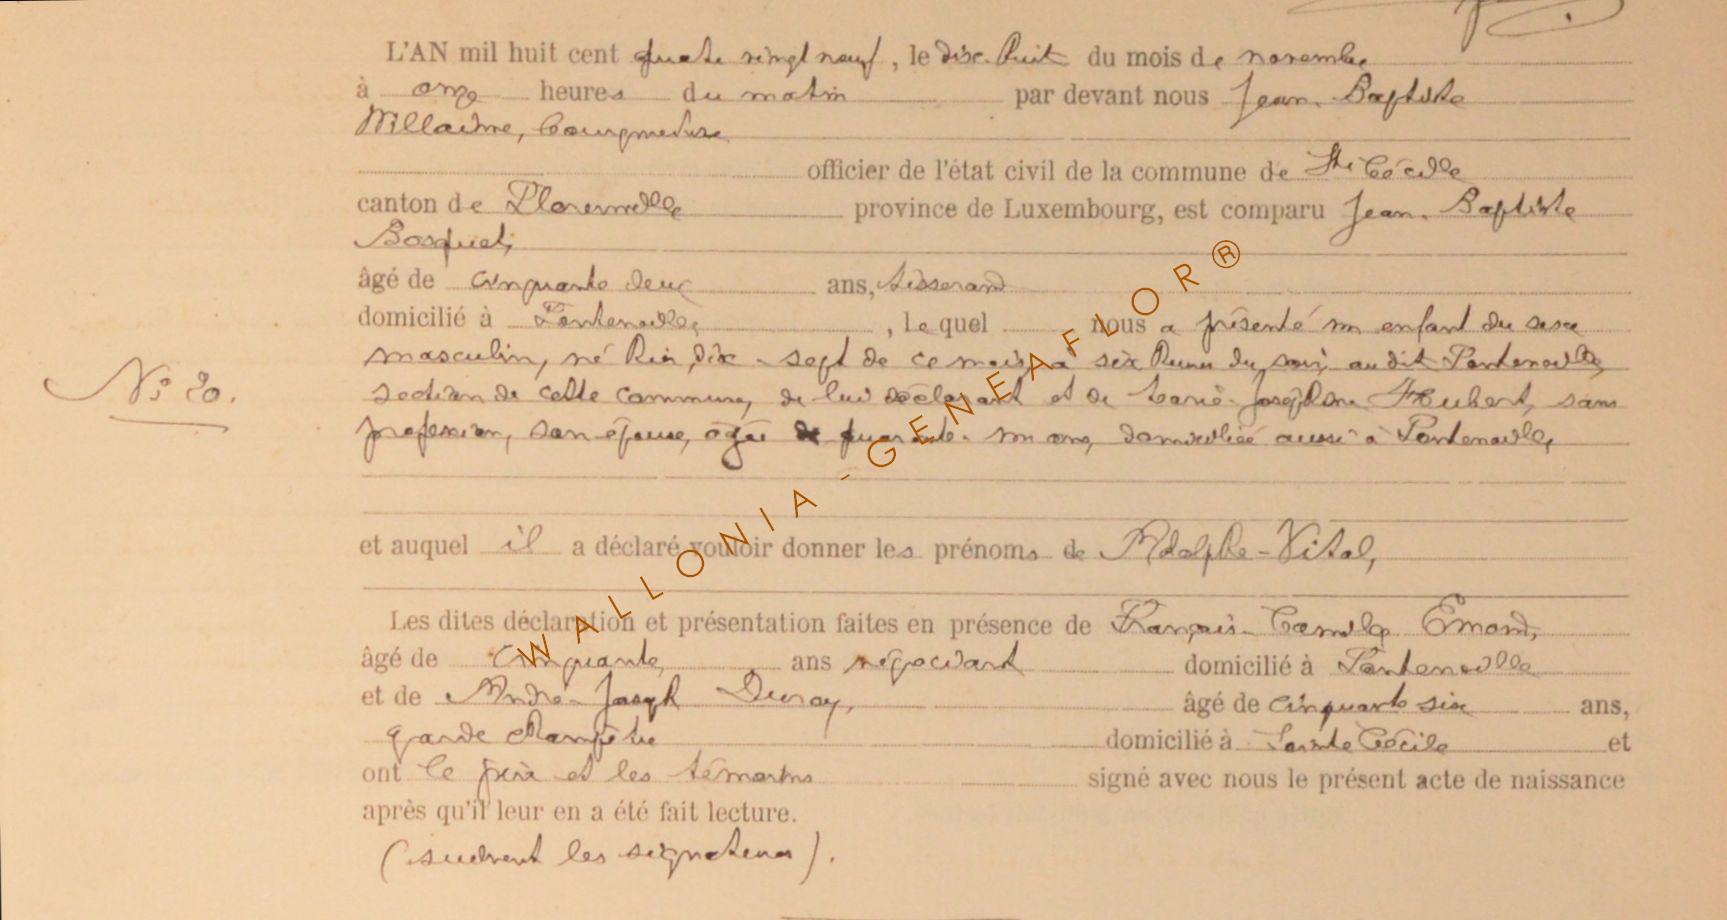 L'AN mil huit cent quatre vingt neuf, le dix-huit du mois de novembre
à onze heures du matin par devant nous Jean-Baptiste
Willaime, bourgmestre
officier de l'état civil de la commune de Ste Cécile
canton de Florenville province de Luxembourg, est comparu Jean-Baptiste
Bosquet,
âgé de cinquante deux ans, tisserand
domicilié à Fontenoille, , lequel nous a présenté un enfant du sexe
masculin, né hier, dix-sept de ce mois, à six heures du soir, au dit Fontenoille,
N° 20.
section de cette commune, de lui déclarant et de Marie-Joséphine Hubert, sans
profession, son épouse, âgée de quarante-un ans, domiciliée aussi à Fontenoille,
et auquel il a déclaré vouloir donner les prénoms de Adolphe-Vital,
Les dites déclaration et présentation faites en présence de François-Camille Emond,
âgé de cinquante, ans négociant domicilié à Fontenoille
et de André-Joseph Duroy, âgé de cinquante six ans,
garde champêtre domicilié à Sainte Cécile et
ont le père et les témoins signé avec nous le présent acte de naissance
après qu'il leur en a été fait lecture.
(suivent les signatures).
WALLONIA - GENEAFLOR®